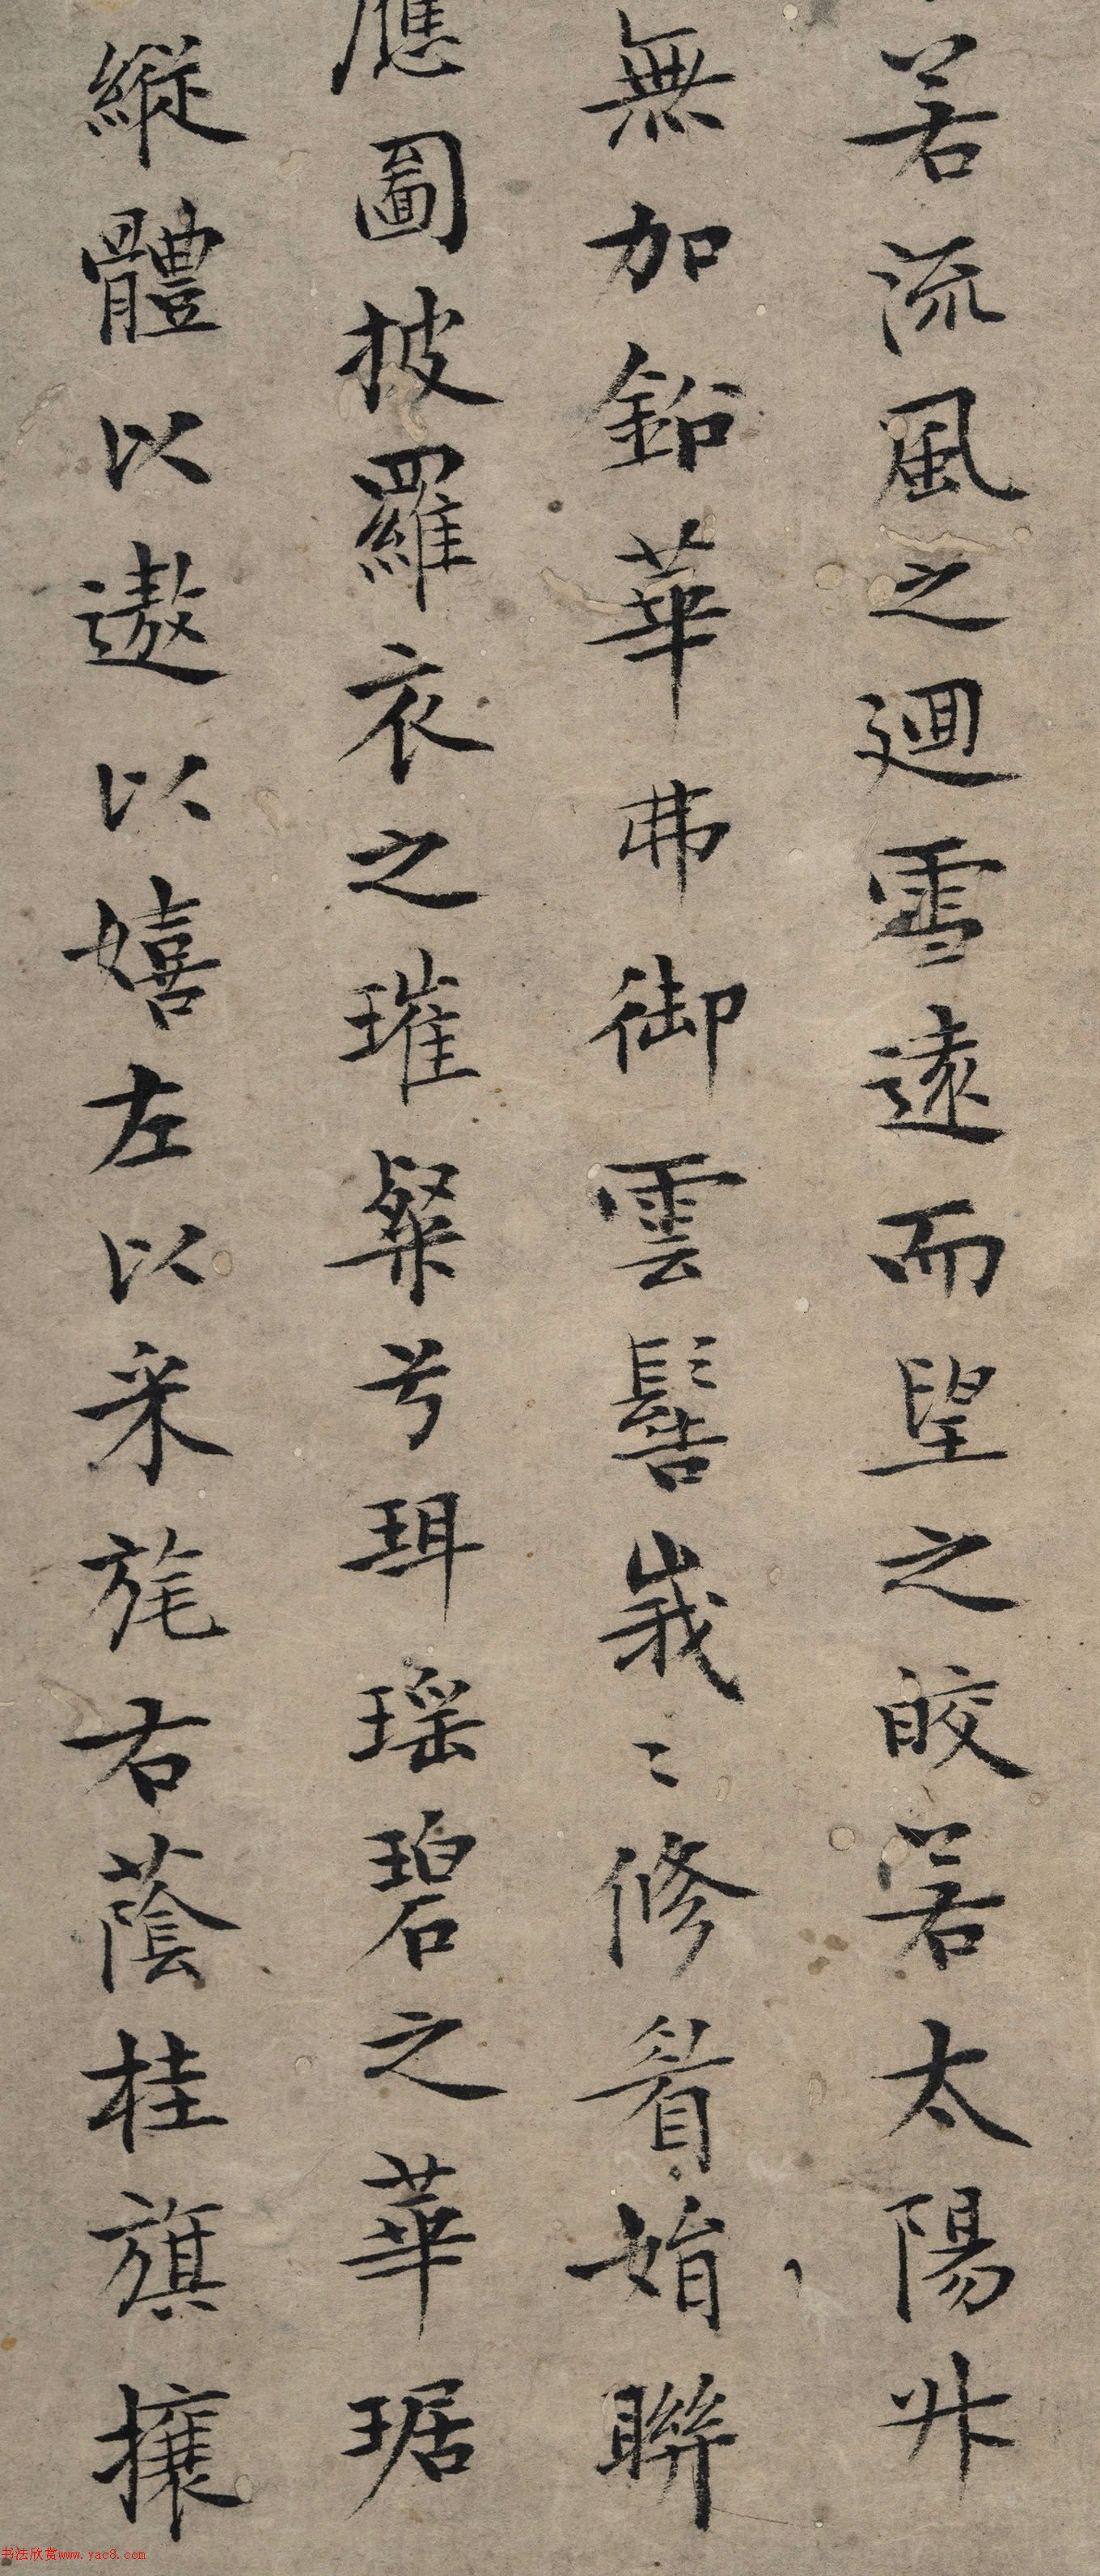 若流風之迴雪遠而望之皎若太陽升
無加鉛華弗御雲髻峩〻修眉娟聯
應圖披羅衣之璀粲兮珥瑶碧之華琚
縱體以遨以嬉左以采旄右蔭桂旗攘
书法欣赏www.yac8.com